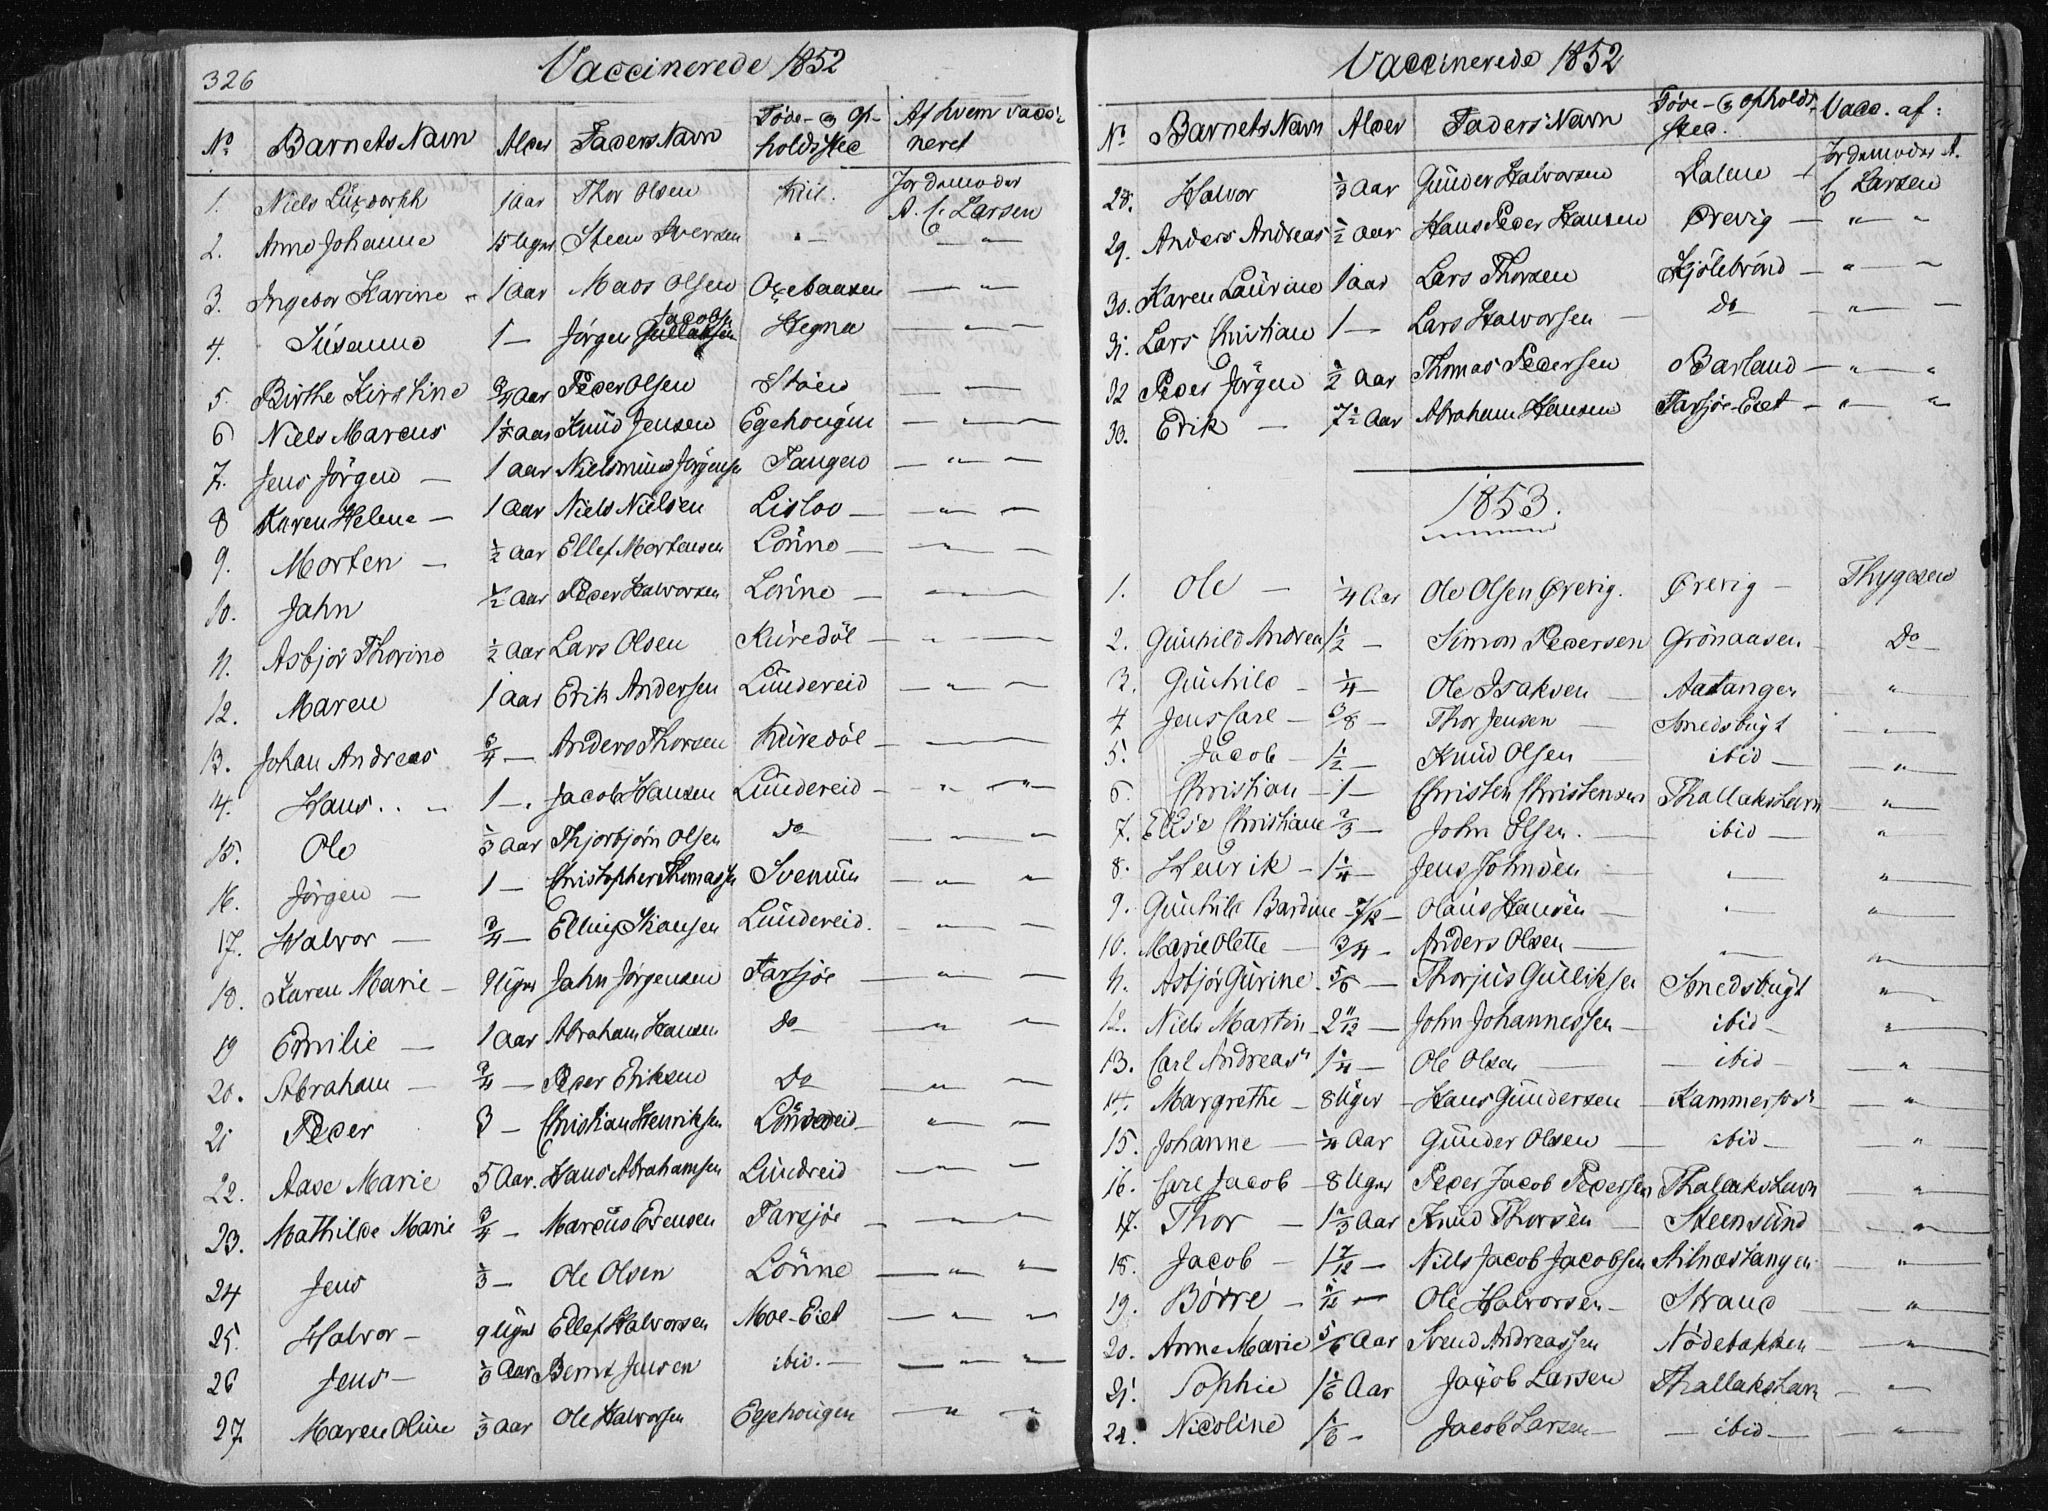 326
Vaccinerede 1852
No. Barnets Navn Alder Faders Navn Føde- og Opholdssted Af hvem vaccineret
1. Niels 1 Aar Thor Olsen Kiil. Jordemoder A. C. Larsen
2. Anne Johanne 15 Uger Steen Iversen " — — " —
3. Ingebor Karine 1 Aar Mads Olsen — " —
4. Susanne 1 — Jørgen Jacobsen Hegna — " —
5. Birthe Kirstine 3/4 Aar Peder Olsen Støen — —
6 Niels Marcus Aar Knud Jensen Egehougen — " —
7. Jens Jörgen — 1 Aar Jörgensen Tangen — " —
8 Karen Helene — 1 Aar Niels Nielsen — " —
9. Morten — 1/2 Aar Ellef Mortensen Lönne — — " —
10. Jahn 1/2 Aar Peder Halvorsen Lönne — — " —
11. Asbjør Thorine 1/2 Aar Lars Olsen — " —
12. Maren 1 Aar Edik Andersen Lündereid — " —
13. Johan Andreas 3/4 — Anders Thorsen — —
14. Hans 1 — Jacob Hansen Lündereid — — " —
15. Ole 1/3 Aar Thjorbjørn Olsen do — —
16. Jörgen — 1 — Christopher Thomassen Svenum — " —
17. Halvor — 3/4 — Elling Hansen Lündereid. — " —
18. Karen Marie — 9 Uger Jahn Jørgensen Farsjøe — " —
19 Emilie — 1 Aar Abraham Hansen do — " —
20. Abraham — 3/4 — Peder Eriksen do — " —
21 Peder 3 — Christian Henriksen — " —
22. Aase Marie 5 Aar. Hans Abrahamsen Lündreid — " —
23. Mathilde Marie 3/4 — Marcus Evensen Farsjøe — " —
24 Jens 1/3 — Ole Olsen Lönne — " — "
25. Halvor — 9 Uger Ellef Halvorsen Moe-Eiet — " —
26 Jens — 1/3 Aar Bernt Jensen ibid. — — " — "
27. Maren Oline 1/3 Aar Ole Halvorsen Egehougen — " — "
Vaccinerede 1852
No Barnets Navn Alder Faders Navn Føde- og Opholdssted. Vacc. af:
28. Halvor 1/3 Aar Gunder Halvorsen Dalene — Jordemoder A. C. Larsen
29. Anders Andreas 1/2 Aar Hans Peder Hansen Ørevig — " — "
30. Karen Laurine 1 Aar Lars Thorsen Kjölebrönd — " — "
31. Lars Christian 1 — Lars Halvorsen — do — " — "
32 Peder Jörgen 1/2 Aar Thomas Pedersen Barland — " — "
33. Edik — 7 1/2 Aar Abraham Hansen Farsjøe-Eiet — " — "
1853.
1. Ole — 1/4 Aar Ole Olsen Ørevig. Ørevig — Thygesen
2. Gunhild Andrea 1/2 — Simon Pedersen Grönaasen — do
3. Gunhild — 1/4 — Ole Isaksen — Aatangen "
4. Jens Carl — 3/8 — Thor Jensen — Smedsbugt — " —
5. Jacob — 1 1/2 — Knud Olsen — ibid — — " —
6. Christian — 1 — Christen Christensen Thallakshavn — " —
7. Elise Christiane 2/3 — John Olsen. — ibid — "
8. Henrik — 1 1/4 — Jens Johnsen — " — "
9. Gunhild Bardine — 7/12 — Olaus Hansen — " — "
10. Marie Olette — 3/4 — Anders Olsen — " — "
11. Asbjør Gurine. 5/6 — Thorjus Gulliksen Smedsbugt "
12. Niels Martin — 2 11/12 — John Johannessen — ibid — "
13. Carl Andreas 1 1/4 — Ole Olsen — — ibid — "
14. Margrethe — 8 Uger — Hans Gundersen — "
15. Johanne — 1/4 Aar Gunder Olsen — ibid — "
16. Carl Jacob — 8 Uger Peder Jacob Pedersen Thallakshavn "
17. Thor — 1 2/3 Aar Knud Thorsen — Steensund "
18. Jacob — 1 7/12 — Niels Jacob Jacobsen — "
19. Börre — — Ole Halvorsen — Strand — "
20. Anne Marie 5/6 Aar Svend Andreassen Nödebakken — " —
21. Sophie 1 1/6 Aar Jacob Larsen Thallakshavn — " —
22. Nicoline 1 1/6 — Jacob Larsen — — ibid — — " —